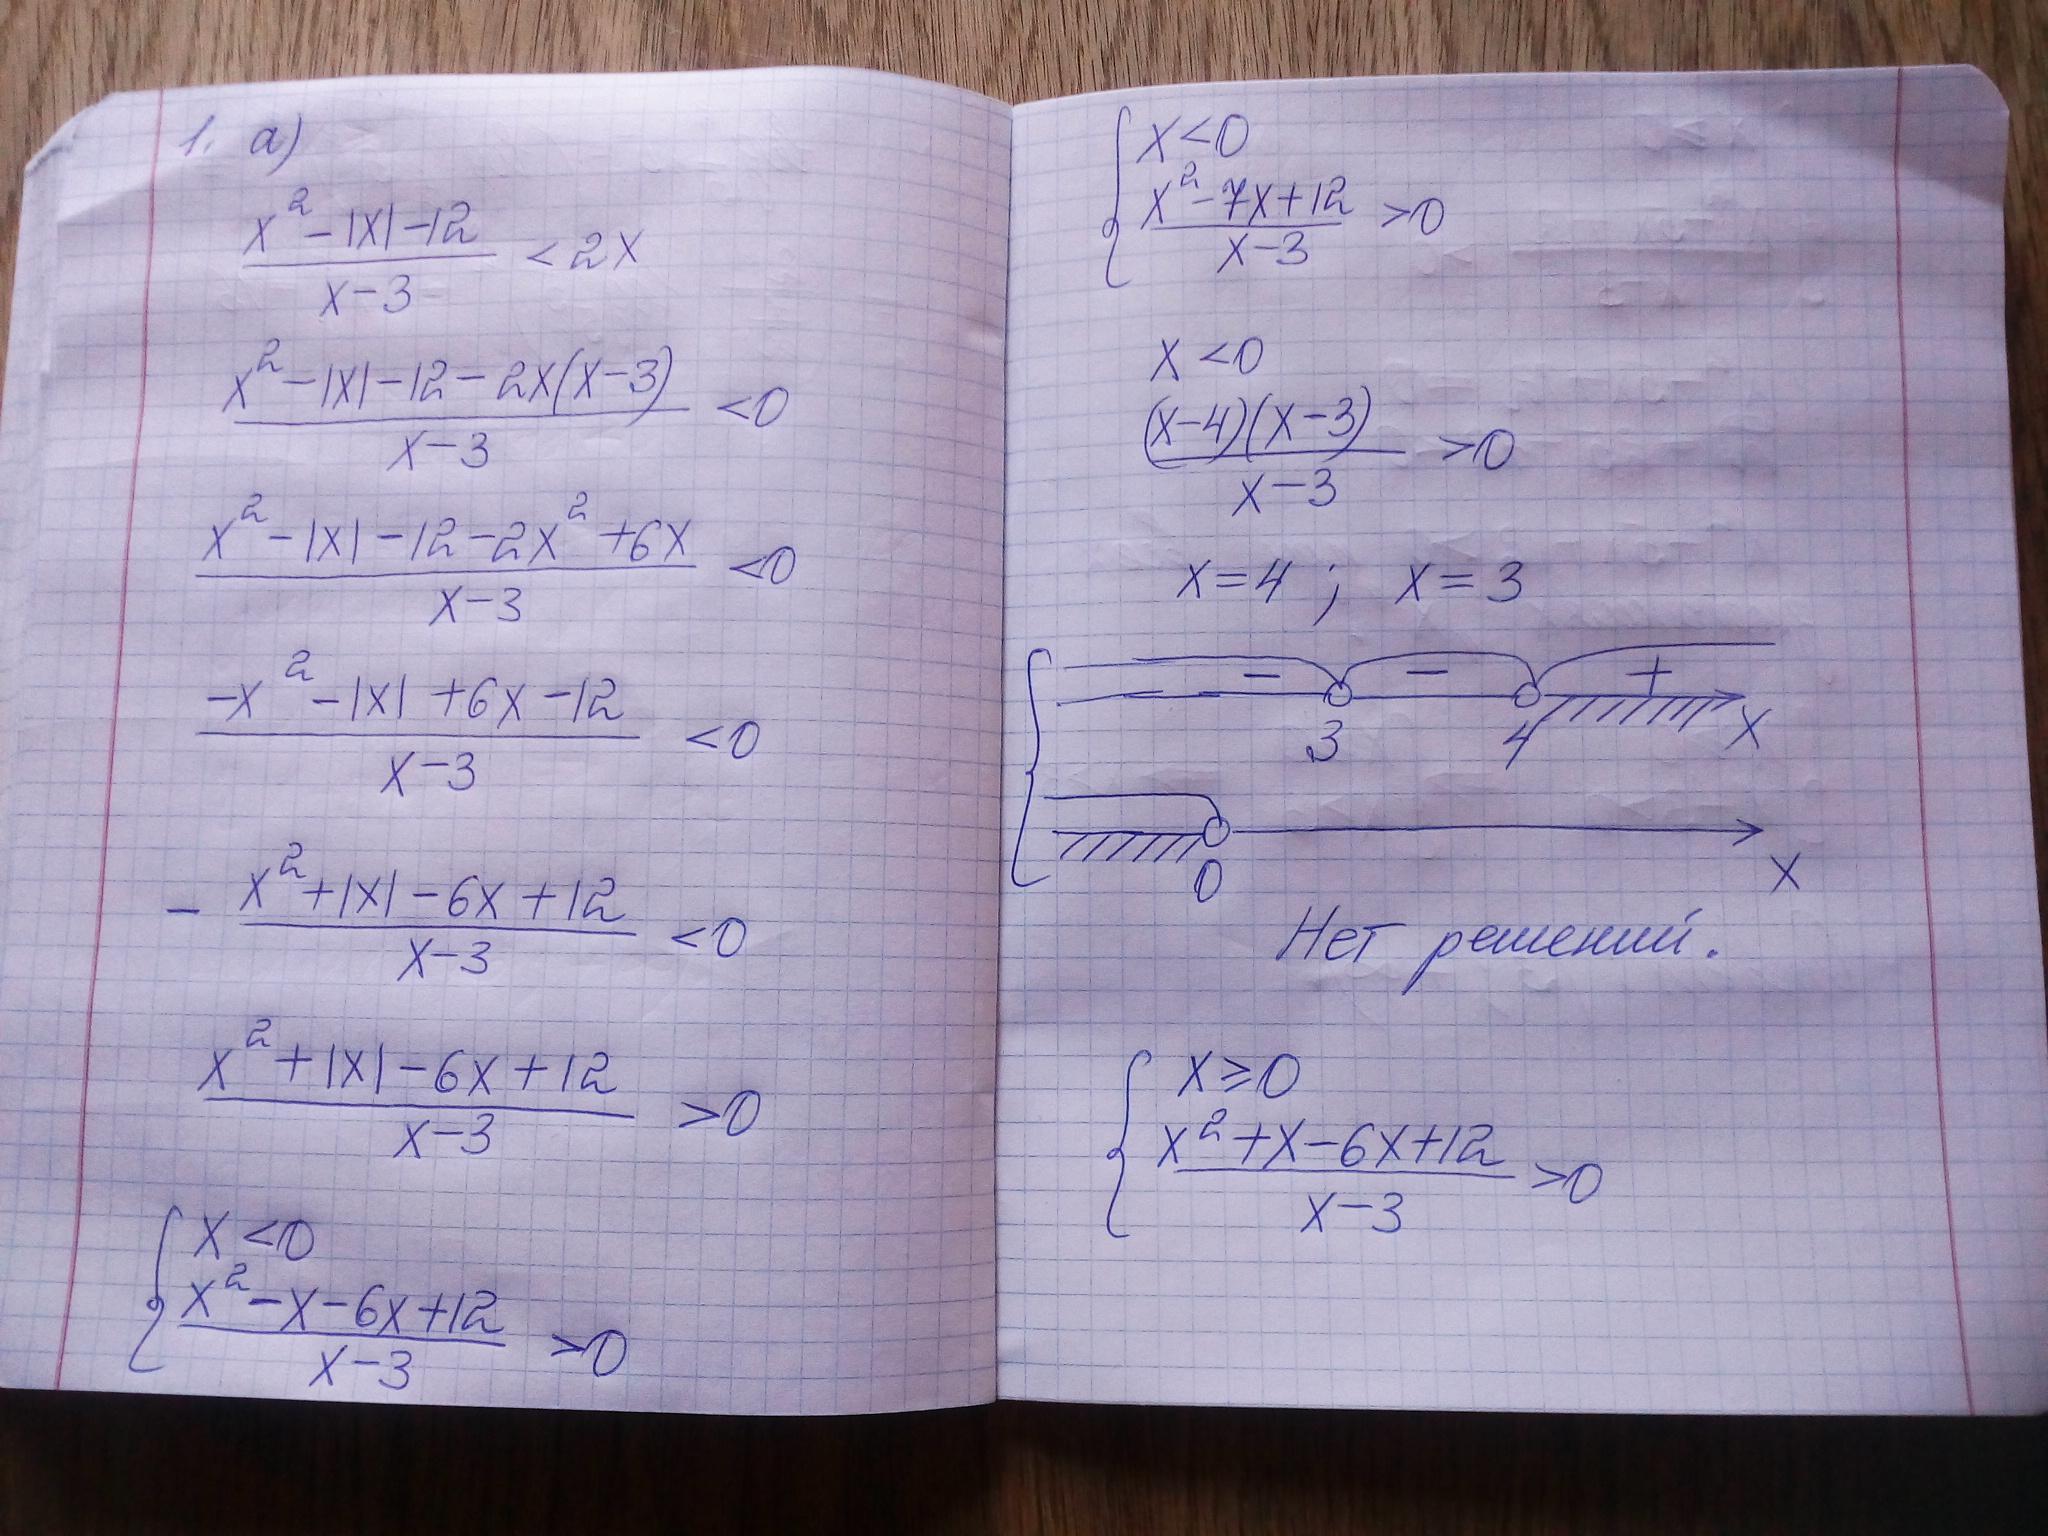 1. а)
x² - |x| - 12
x - 3
< 2x
x² - |x| - 12 - 2x(x - 3)
x - 3
< 0
x² - |x| - 12 - 2x² + 6x
x - 3
< 0
-x² - |x| + 6x - 12
x - 3
< 0
- x² + |x| - 6x + 12
x - 3
< 0
x² + |x| - 6x + 12
x - 3
> 0
x < 0
x² - x - 6x + 12
x - 3
> 0
x < 0
x² - 7x + 12
x - 3
> 0
x < 0
(x - 4)(x - 3)
x - 3
> 0
x = 4 ; x = 3
- - +
3 4 x
0 x
Нет решений.
x ⩾ 0
x² + x - 6x + 12
x - 3
> 0